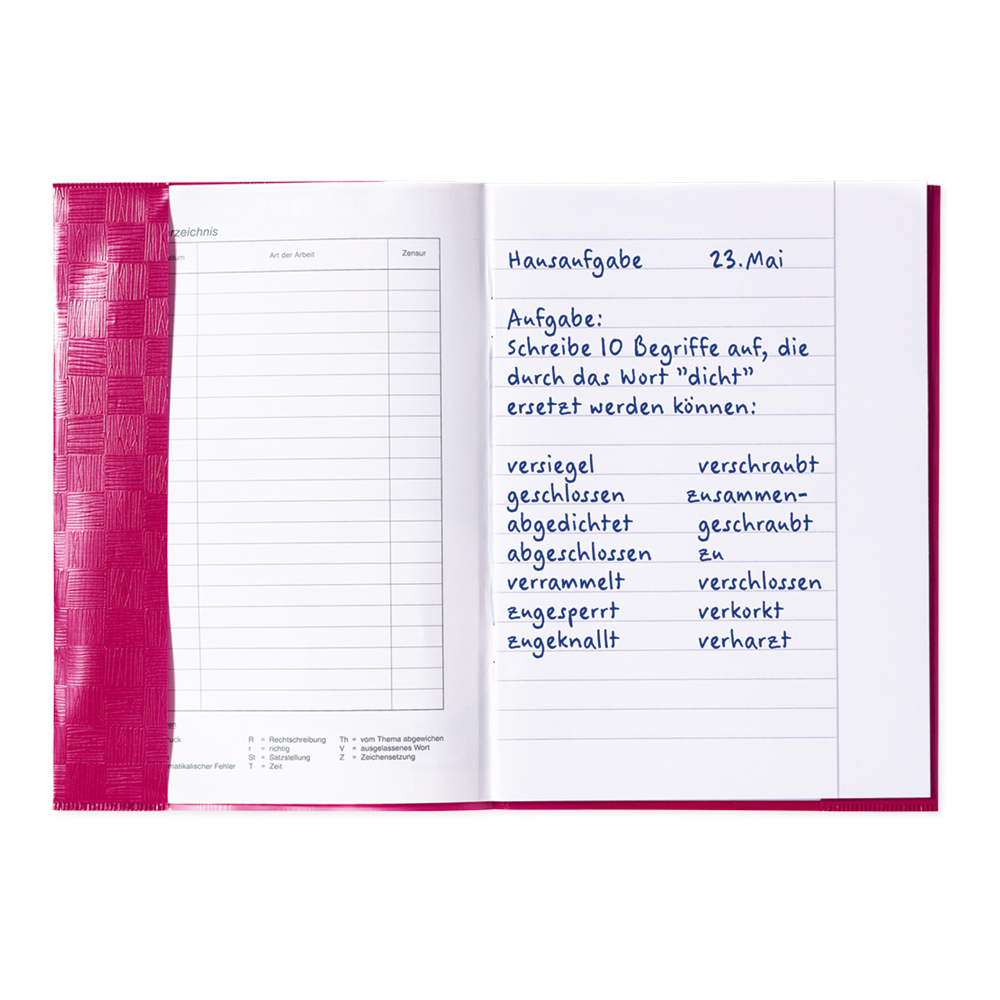 rzeichnis
atum Art der Arbeit Zensur
en
ruck R = Rechtschreibung Th = vom Thema abgewichen
r = richtig V = ausgelassenes Wort
St = Satzstellung Z = Zeichensetzung
matikalischer Fehler T = Zeit
Hausaufgabe 23. Mai
Aufgabe:
Schreibe 10 Begriffe auf, die
durch das Wort "dicht"
ersetzt werden können:
versiegel verschraubt
geschlossen zusammen-
abgedichtet geschraubt
abgeschlossen zu
verrammelt verschlossen
zugesperrt verkorkt
zugeknallt verharzt